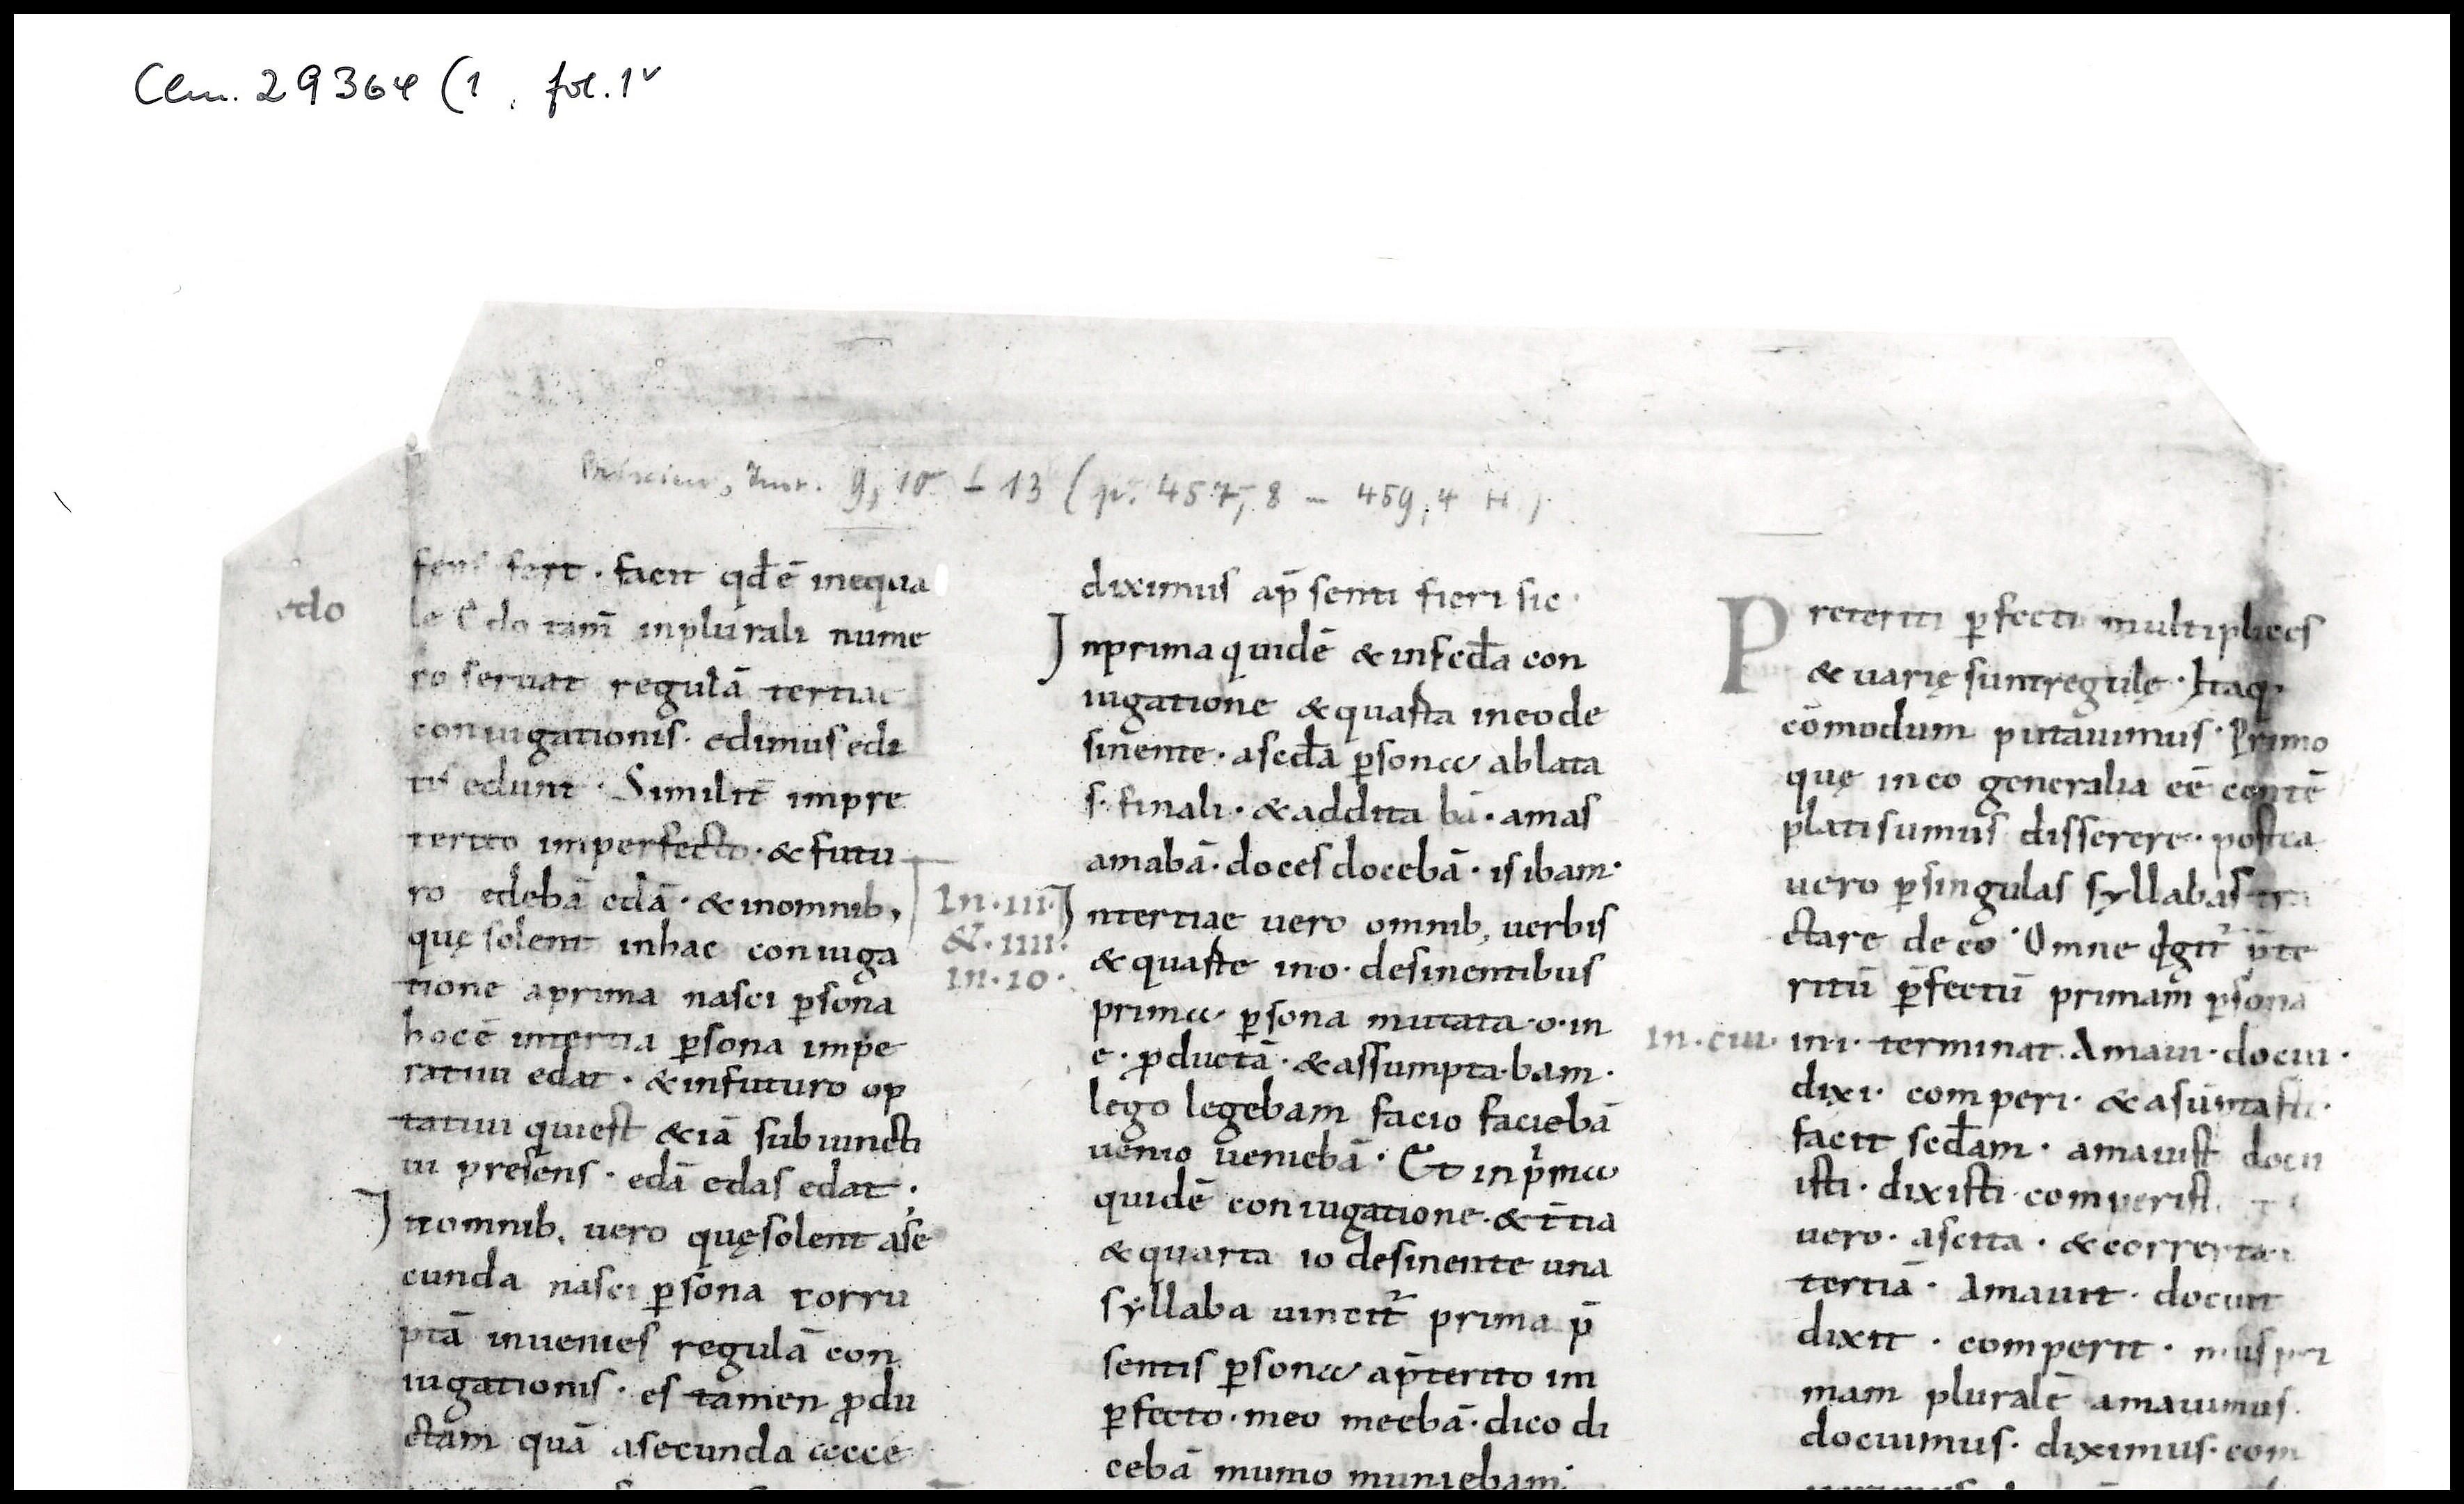 Clm. 29364 (1, fol. 1v
Priscian, Inst. 9, 10 – 13 (p. 457,8 – 459,4 H)
edo
fers fert · facit qđē inequa
le Edo tam̄ inplurali nume
ro seruat regulā tertiae
coniugationis · edimus edi
tis edunt · Similit̄ impre
terito imperfecto · & futu
ro edebā edā · & inomnib,
quę solent inhac coniuga
tione aprima nasci ꝑsona
hocē intertia ꝑsona impe
ratiui edat · & infuturo op
tatiui quiest &iā subiuncti
ui presens · edā edas edat ;
Inomnib, uero quęsolent ase
cunda nasci ꝑsona corru
ptā inuenies regulā con
iugationis · es tamen ꝓdu
ctam quā asecunda
diximus ap̄senti fieri sic ·
Inprima quidē & insecđa con
iugatione & quarta ineode
sinente · asecđa ꝑsona ablata
s · finali · & addita bā · amas
amabā · doces docebā · is ibam ·
In · III ·
& · IIII ·
in · io ·
Intertiae uero omnib, uerbis
& quarte ino · desinentibus
prima ꝑsona mutata · o · in
e · ꝓductā · & assumpta · bam ·
lego legebam facio faciebā
uenio ueniebā · Et inprima
quidē coniugatione · & t̄tia
& quarta io desinente una
syllaba uincit᷑ prima p̄
sentis ꝑsona ap̄terito im
ꝑfecto · meo meebā · dico di
cebā munio muniebam ·
Preteriti ꝑfecti multiplices
& uarię suntregulę · Itaq·
cōmodum putauimus · Primo
quę ineo generalia eē contē
plati sumus disserere · postea
uero ꝑsingulas syllabas tra
ctare de eo · Omne igit᷑ p̄te
ritū ꝑfectū primam ꝑsonā
in · i · terminat · Amaui · docui ·
dixi · comperi · & asūpta sti ·
facit secđam · amauisti docu
isti · dixisti comperisti
uero · ascita · & correpta · i
tertiā · Amauit · docuit
dixit · comperit · mus pri
mam pluralē amauimus ·
docuimus · diximus · com